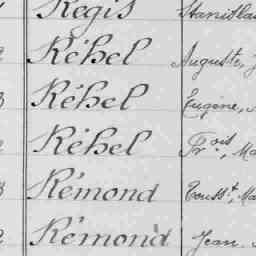 Régis Stanisla
Réhel Auguste, J
Réhel Eugène,
Réhel Fr.ois, Ma
Rémond Touss.t, Ma
Rémond Jean